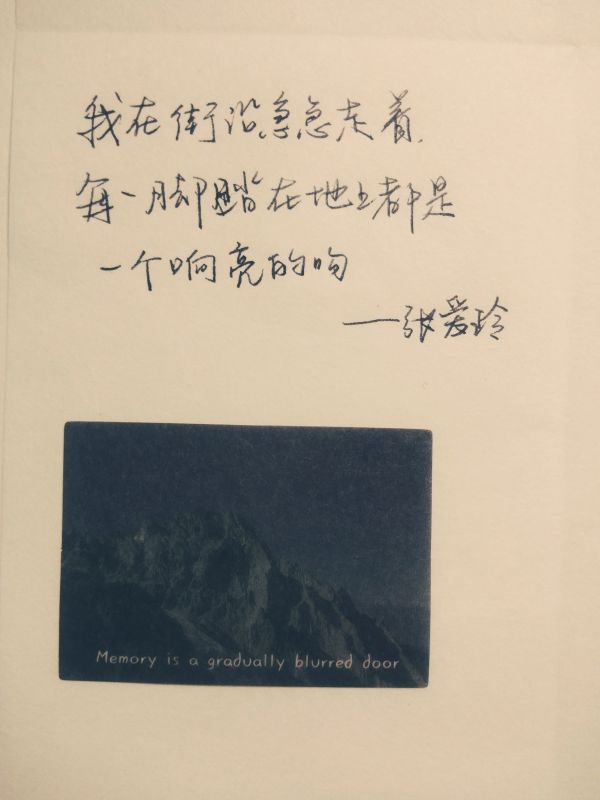 我在街沿急急走着,
每一脚踏在地上都是
一个响亮的吻
——张爱玲
Memory is a gradually blurred door